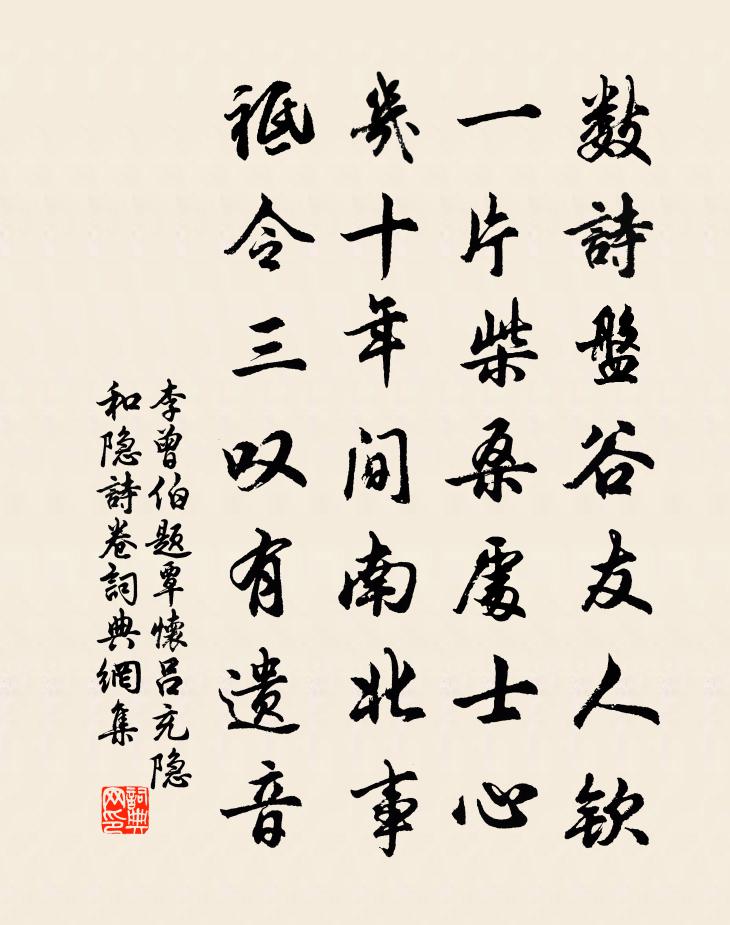 数詩盤谷友人欽
一片柴桑處士心
幾十年间南北事
祗令三叹有遗音
李曾伯题覃懷吕充隐
和隐詩卷詞典網集
詞典网印